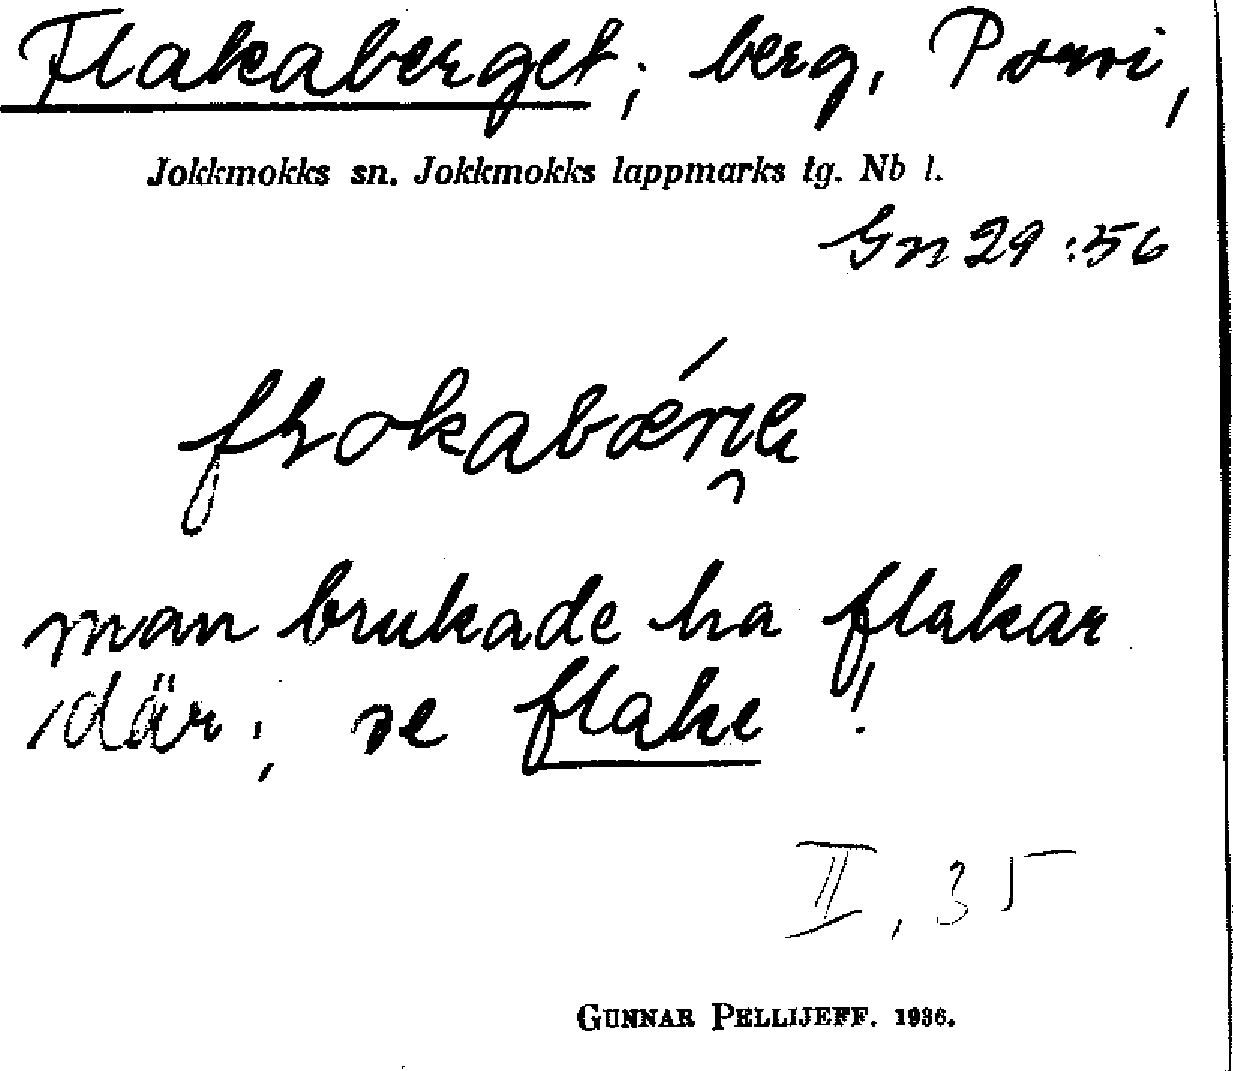 Flakaberget; berg, Porsi,
Jokkmokks sn. Jokkmokks lappmarks tg. Nb l.
Gn 29:56
man brukade ha flakar
där; se flake!
II, 35
GUNNAR PELLIJEFF. 1936.